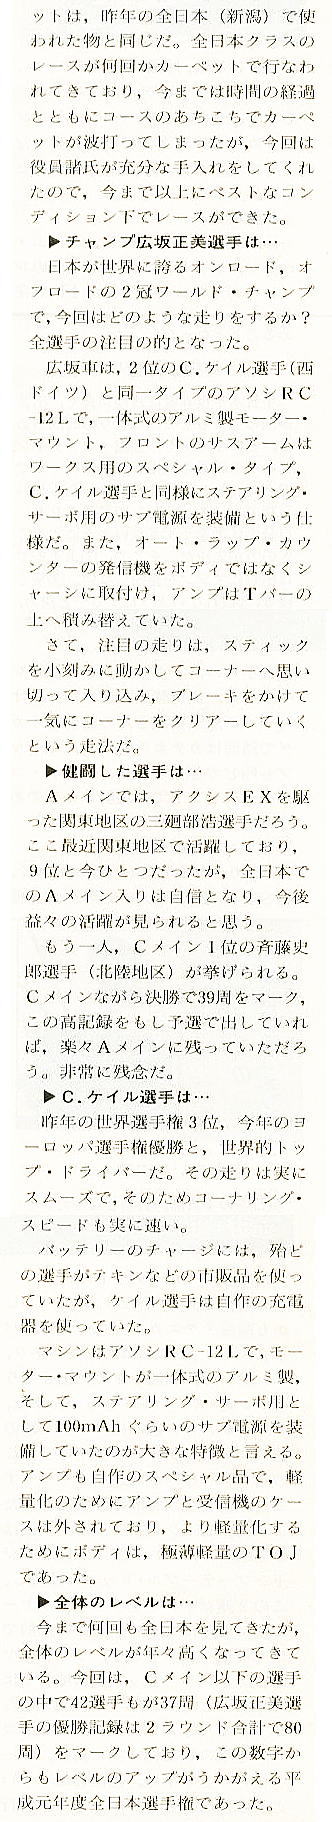 ットは，昨年の全日本（新潟）で使
われた物と同じだ。全日本クラスの
レースが何回かカーペットで行なわ
れてきており，今までは時間の経過
とともにコースのあちこちでカーペ
ットが波打ってしまったが，今回は
役員諸氏が充分な手入れをしてくれ
たので，今まで以上にベストなコン
ディション下でレースができた。
▶チャンプ広坂正美選手は…
日本が世界に誇るオンロード，オ
フロードの２冠ワールド・チャンプ
で，今回はどのような走りをするか？
全選手の注目の的となった。
広坂車は，２位のＣ．ケイル選手（西
ドイツ）と同一タイプのアソシＲＣ
-12Ｌで，一体式のアルミ製モーター・
マウント，フロントのサスアームは
ワークス用のスペシャル・タイプ，
Ｃ．ケイル選手と同様にステアリング・
サーボ用のサブ電源を装備という仕
様だ。また，オート・ラップ・カウ
ンターの発信機をボディではなくシ
ャーシに取付け，アンプはＴバーの
上へ積み替えていた。
さて，注目の走りは，スティック
を小刻みに動かしてコーナーへ思い
切って入り込み，ブレーキをかけて
一気にコーナーをクリアーしていく
という走法だ。
▶健闘した選手は…
Ａメインでは，アクシスＥＸを駆
った関東地区の三廻部浩選手だろう。
ここ最近関東地区で活躍しており，
９位と今ひとつだったが，全日本で
のＡメイン入りは自信となり，今後
益々の活躍が見られると思う。
もう一人，Ｃメイン１位の斉藤史
郎選手（北陸地区）が挙げられる。
Ｃメインながら決勝で39周をマーク，
この高記録をもし予選で出していれ
ば，楽々Ａメインに残っていただろ
う。非常に残念だ。
▶Ｃ．ケイル選手は…
昨年の世界選手権３位，今年のヨ
ーロッパ選手権優勝と，世界的トッ
プ・ドライバーだ。その走りは実に
スムーズで，そのためコーナリング・
スピードも実に速い。
バッテリーのチャージには，殆ど
の選手がテキンなどの市販品を使っ
ていたが，ケイル選手は自作の充電
器を使っていた。
マシンはアソシＲＣ-12Ｌで，モー
ター・マウントが一体式のアルミ製，
そして，ステアリング・サーボ用と
して100mAhぐらいのサブ電源を装
備していたのが大きな特徴と言える。
アンプも自作のスペシャル品で，軽
量化のためにアンプと受信機のケー
スは外されており，より軽量化する
ためにボディは，極薄軽量のＴＯＪ
であった。
▶全体のレベルは…
今まで何回も全日本を見てきたが，
全体のレベルが年々高くなってきて
いる。今回は，Ｃメイン以下の選手
の中で42選手もが37周（広坂正美選
手の優勝記録は２ラウンド合計で80
周）をマークしており，この数字か
らもレベルのアップがうかがえる平
成元年度全日本選手権であった。